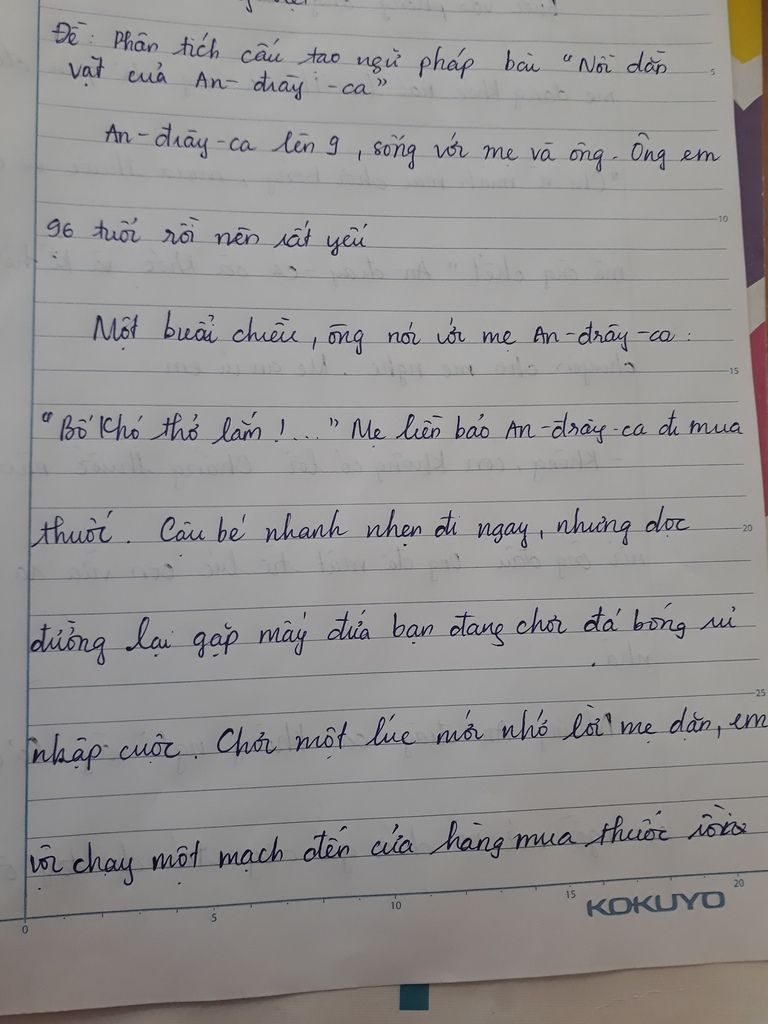 Đề: Phân tích cấu tạo ngữ pháp bài "Nỗi dằn
vặt của An-đrây-ca"
An-đrây-ca lên 9, sống với mẹ và ông. Ông em
96 tuổi rồi nên rất yếu
Một buổi chiều, ông nói với mẹ An-đrây-ca:
"Bố khó thở lắm!..." Mẹ liền bảo An-đrây-ca đi mua
thuốc. Cậu bé nhanh nhẹn đi ngay, nhưng dọc
đường lại gặp mấy đứa bạn đang chơi đá bóng rủ
nhập cuộc. Chơi một lúc mới nhớ lời mẹ dặn, em
vội chạy một mạch đến cửa hàng mua thuốc rồi
0 5 10 15 20
KOKUYO
5
10
15
20
25